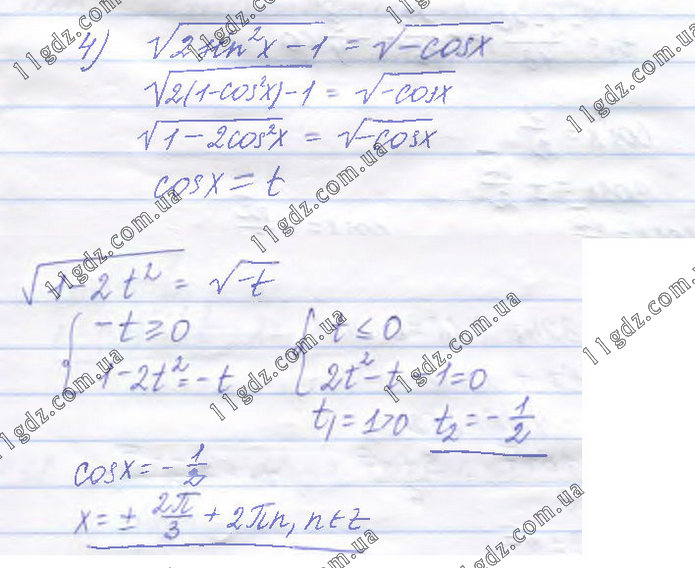 4) √(2sin²x − 1) = √(−cosx)
√(2(1−cos²x)−1) = √(−cosx)
√(1 − 2cos²x) = √(−cosx)
cosx = t
√(1 − 2t²) = √(−t)
{ −t ≥ 0
1 − 2t² = −t
{ t ≤ 0
2t² − t − 1 = 0
t₁ = 1 > 0 t₂ = −1/2
cosx = −1/2
x = ± 2π/3 + 2πn, n ∈ Z
11gdz.com.ua
11gdz.com.ua
11gdz.com.ua
11gdz.com.ua
11gdz.com.ua
11gdz.com.ua
11gdz.com.ua
11gdz.com.ua
11gdz.com.ua
11gdz.com.ua